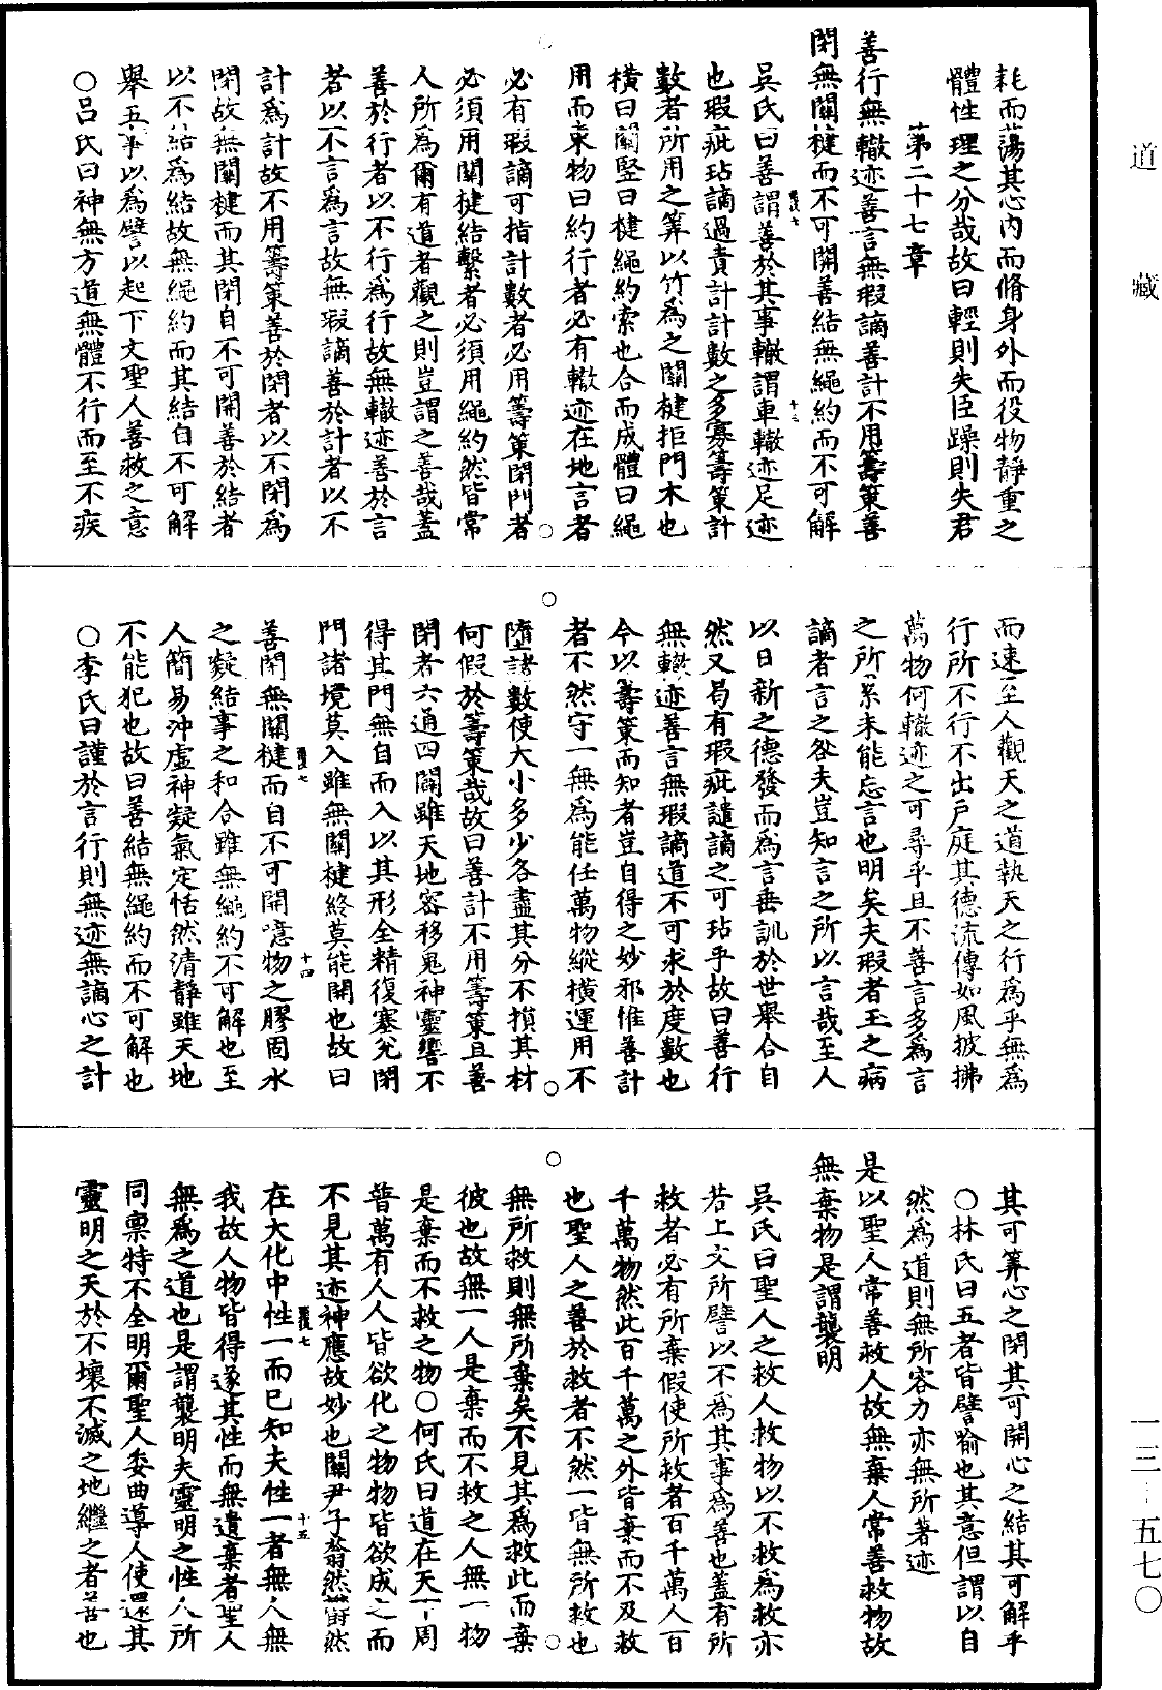 道藏
一三－五七〇
耗而蕩其心內而脩身外而役物靜重之
體性理之分哉故曰輕則失臣躁則失君
第二十七章
善行無轍迹善言無瑕讁善計不用籌策善
閉無關楗而不可開善結無繩約而不可解
吳氏曰善謂善於其事轍謂車轍迹足迹
也瑕疵玷讁過責計計數之多寡籌策計
數者所用之筭以竹為之關楗拒門木也
橫曰關竪曰楗繩約索也合而成體曰繩
用而束物曰約行者必有轍迹在地言者
必有瑕讁可指計數者必用籌策閉門者
必須用關楗結繫者必須用繩約然皆常
人所為爾有道者觀之則豈謂之善哉蓋
善於行者以不行為行故無轍迹善於言
者以不言為言故無瑕讁善於計者以不
計為計故不用籌策善於閉者以不閉為
閉故無關楗而其閉自不可開善於結者
以不結為結故無繩約而其結自不可解
舉五事以為譬以起下文聖人善救之意
○呂氏曰神無方道無體不行而至不疾
而速至人觀天之道執天之行為乎無為
行所不行不出戶庭其德流傳如風披拂
萬物何轍迹之可尋乎且不善言多為言
之所累未能忘言也明矣夫瑕者玉之病
讁者言之咎夫豈知言之所以言哉至人
以日新之德發而為言垂訓於世舉合自
然又曷有瑕疵譴讁之可玷乎故曰善行
無轍迹善言無瑕讁道不可求於度數也
今以籌策而知者豈自得之妙邪惟善計
者不然守一無為能任萬物縱橫運用不
墮諸數使大小多少各盡其分不損其材
何假於籌策哉故曰善計不用籌策且善
閉者六通四闢雖天地密移鬼神靈響不
得其門無自而入以其形全精復塞兌閉
門諸境莫入雖無關楗終莫能開也故曰
善閉無關楗而自不可開噫物之膠固水
之凝結事之和合雖無繩約不可解也至
人簡易沖虛神凝氣定恬然清靜雖天地
不能犯也故曰善結無繩約而不可解也
○李氏曰謹於言行則無迹無讁心之計
其可筭心之閉其可開心之結其可解乎
○林氏曰五者皆譬喻也其意但謂以自
然為道則無所容力亦無所著迹
是以聖人常善救人故無棄人常善救物故
無棄物是謂襲明
吳氏曰聖人之救人救物以不救為救亦
若上文所譬以不為其事為善也蓋有所
救者必有所棄假使所救者百千萬人百
千萬物然此百千萬之外皆棄而不及救
也聖人之善於救者不然一皆無所救也
無所救則無所棄矣不見其為救此而棄
彼也故無一人是棄而不救之人無一物
是棄而不救之物○何氏曰道在天下周
普萬有人人皆欲化之物物皆欲成之而
不見其迹神應故妙也關尹子蓊然蔚然
在大化中性一而已知夫性一者無人無
我故人物皆得遂其性而無遺棄者聖人
無為之道也是謂襲明夫靈明之性人所
同禀特不全明爾聖人委曲導人使還其
靈明之天於不壞不滅之地繼之者善也